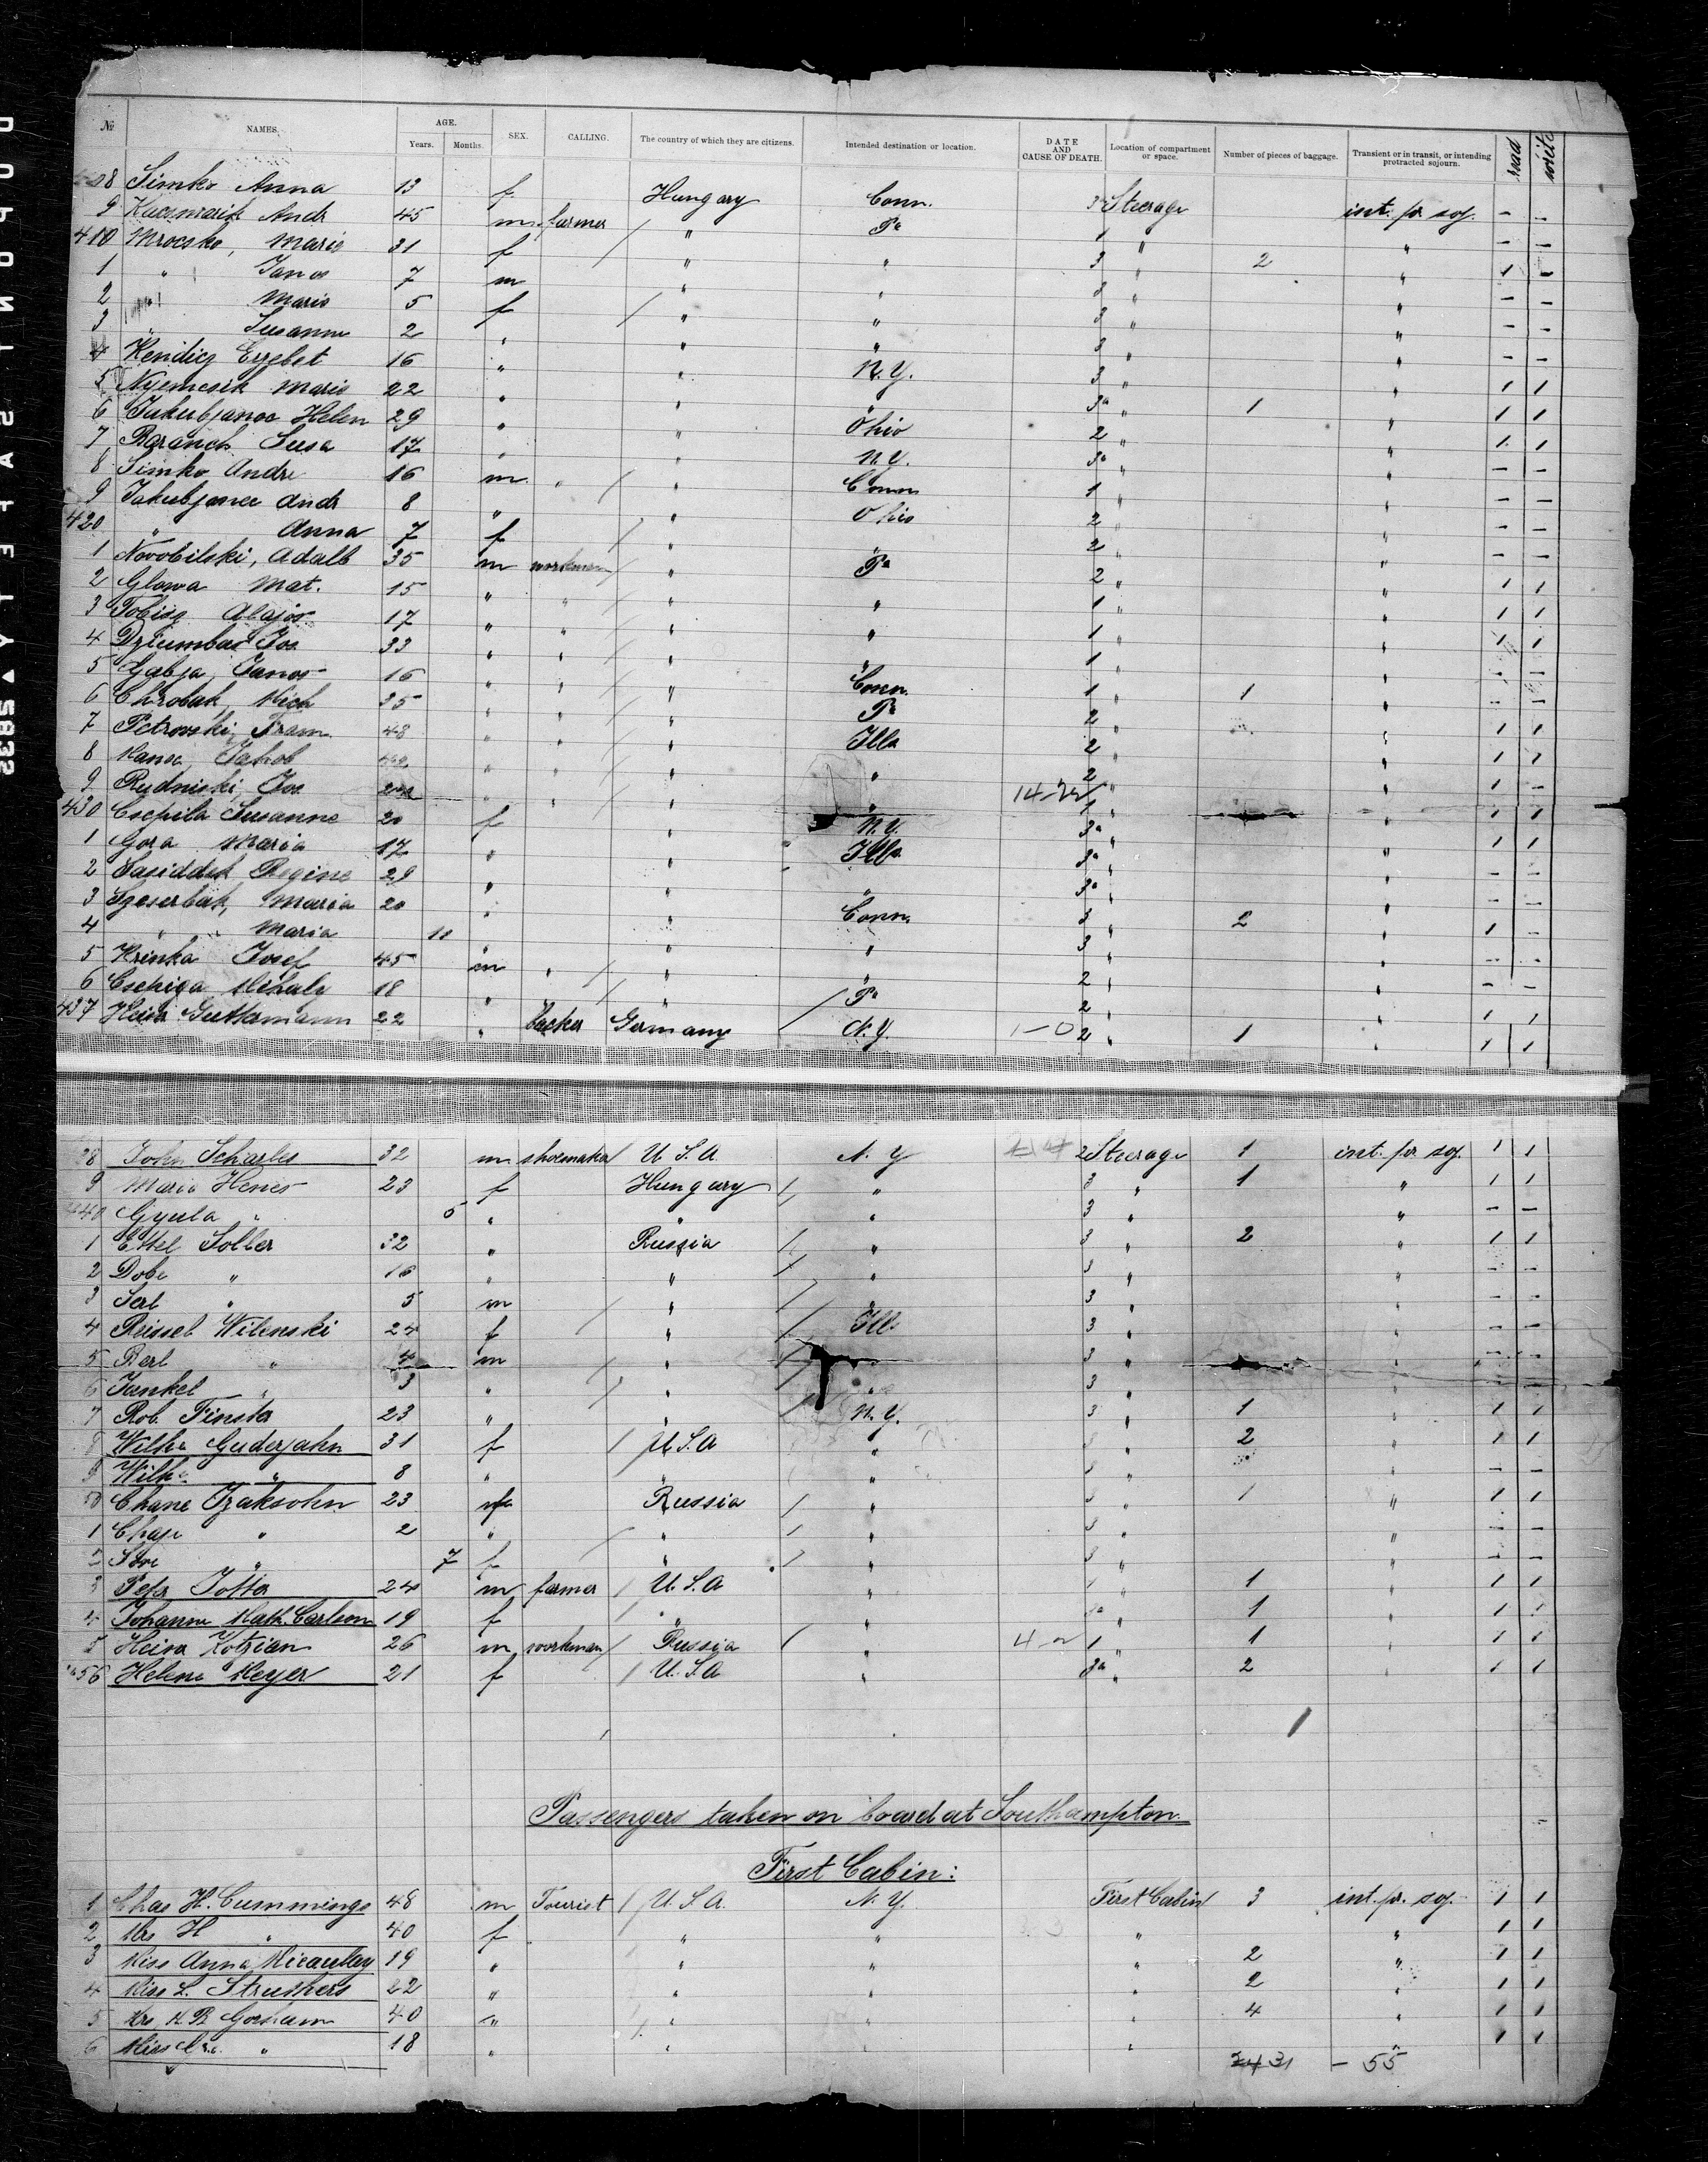 No. NAMES. AGE. Years. Months. SEX. CALLING. The country of which they are citizens. Intended destination or location. DATE AND CAUSE OF DEATH. Location of compartment or space. Number of pieces of baggage. Transient or in transit, or intending protracted sojourn. read write
408 Simko Anna 13 f. Hungary Conn. 3a Steerage int. pr soj. - -
9 Andr 45 m. farmer " Pa 1 " " - -
410 Mrocsko, Maria 31 f " " 3 " 2 " 1 -
1 " Janos 7 m " " 3 " " - -
2 " Maria 5 f " " 3 " " - -
3 " Susanne 2 " " " 3 " " - -
4 Kendicz Erzebet 16 " " N. Y. 3 " " 1 1
5 Nyemcsik Maria 22 " " " 3a " 1 " 1 1
6 Jakubjanec Helen 29 " " Ohio 2 " " 1 1
7 Baranek Susa 17 " " N. Y. 3a " " - -
8 Simko Andr 16 m " " Conn 1 " " - -
9 Jakubjanec Andr 8 " " Ohio 2 " " - -
420 " Anna 7 f " " 2 " " - -
1 Novobilski, Adalb 35 m workman " Pa 2 " " 1 1
2 Glowa Mat. 15 " " " " 1 " " 1 1
3 Tobisz Alajos 17 " " " " 1 " " 1 1
4 Dziumbas Jos 33 " " " " 1 " " - -
5 Gabja, Janos 16 " " " Conn. 1 " 1 " - -
6 Chrobak, Mich 35 " " " Pa 2 " " 1 1
7 Petrovski, Fram 48 " " " Ills 2 " " 1 1
8 Jakob 42 " " " " 2 " " 1 -
9 Rudniski, Jos 24 " " " " 14-22 1 " " 1 1
430 Csepila Susanne 20 f " N. Y. 3a " " 1 1
1 Gora Maria 17 " " Ills 3a " " - -
2 Regine 29 " " " 3a " " - -
3 Szcserbak, Maria 20 " " Conn. 3 " 2 " 1 -
4 " Maria 11 " " " 3 " " - -
5 Krinka Josef 45 m " " " 2 " " - -
6 Csepiga Mihaly 18 " " Pa 2 " " 1 1
437 Heinr Guthermann 22 " backer Germany N. Y. 1-0 2 " 1 " 1 1
38 John Scharles 32 m shoemaker U. S. A. N. Y 2 Steerage 1 int. pr soj. 1 1
9 Maria Henes 23 f Hungary " 3 " 1 " 1 1
440 Gyula " 5 " " " 3 " " - -
1 Ettel Soller 32 " Russia " 3 " 2 " 1 1
2 Dobe " 16 " " " 3 " " - -
3 Serl " 5 m " " 3 " " - -
4 Reissel Wilenski 24 f " Ill. 3 " " - -
5 Berl " 4 m " " 3 " " - -
6 Jankel " 3 " " " 3 " " - -
7 Rob. Finster 23 " " N. Y. 3 " 1 " 1 1
8 Wilhe Guderjahn 31 f U. S. A " 3 " 2 " 1 1
9 Wilhe " 8 " " " 3 " " - -
50 Chane Izaksohn 23 Russia " 3 " 1 " 1 1
1 Chaje " 2 " " " 3 " " - -
2 " 7 f " " 3 " " - -
3 Peter 24 m farmer U. S. A " 1 " 1 " 1 1
4 Johanne Math. Carlson 19 f " " 1a " 1 " 1 1
5 Heinr Kotzian 26 m workman Russia " 1 " 1 " 1 1
456 Helene Meyer 21 f U. S. A " 3a " 2 " 1 1
Passengers taken on board at Southampton.
First Cabin:
1 Chas H. Cummings 48 m Tourist U. S. A. N. Y. First Cabin 3 int. pr. soj. 1 1
2 Mrs H " 40 f " " " " 1 1
3 Miss Anna Micauley 19 " " " " 2 " 1 1
4 Miss L. Struthers 22 " " " " 2 " 1 1
5 Mrs. H B Gorham 40 " " " " 4 " 1 1
6 Miss " 18 " " " " " 1 1
31 - 55